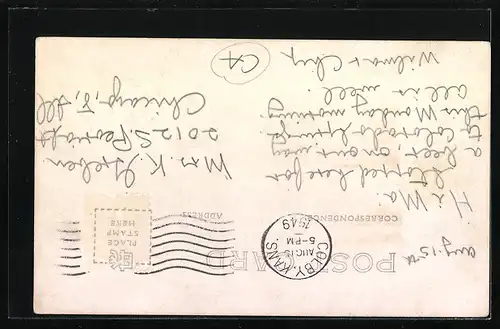 POST CARD
Aug. 15th
CORRESPONDENCE
COLBY, KANS.
AUG 15
5-PM
1949
Hi Ma:
Stopped here for
a beer, on our way
to Colorado Springs.
this Monday morning.
all is well.
Wilmar Chez
ADDRESS
PLACE
STAMP
HERE
Mrs. K.
2012 S. Peoria St
Chicago, 8, Ill